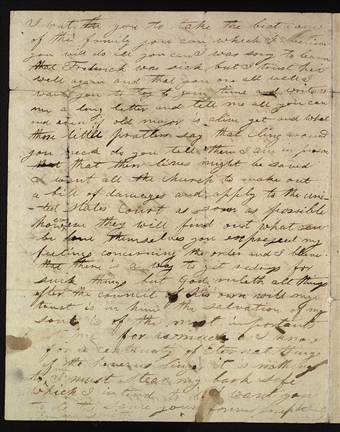 I want you to take the best care
of the family you can which I
you will do all you can I was sory to learn
that Frederick was sick but I trust he is
well again and that you are all well I
want you to try to gain time and write to
me a long letter and tell me all you can
and even if old major is alive yet and what
those little prattlers say that cling around
you neck do you tell them I am in prison
that their lives might be saved
I want all the church to make out
a bill of damages and apply to the uni-
ted states Court as soon as possible
however they will find out what can
be done themselves you expressed my
feelings concerning the order and I believe
that there is a way to get redress for
such things but God ruleth all things
after the council of his own will my
trust is in him the salvation of my
soul is of the most importants
to me for as much as I know
for a certainty of Eternal things
if the heveans
I must steady my bark safe
which I intend to do want you
to do the same yours forever Joseph